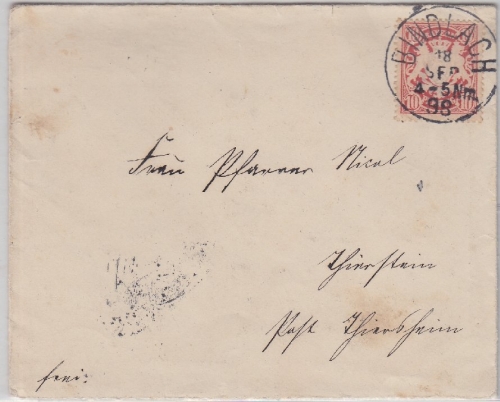 BINDLACH
18
SEP
4-5 Nm.
98
10 10
Frau Pfarrer Nicol
Thierstein
Post Thiersheim
frei: